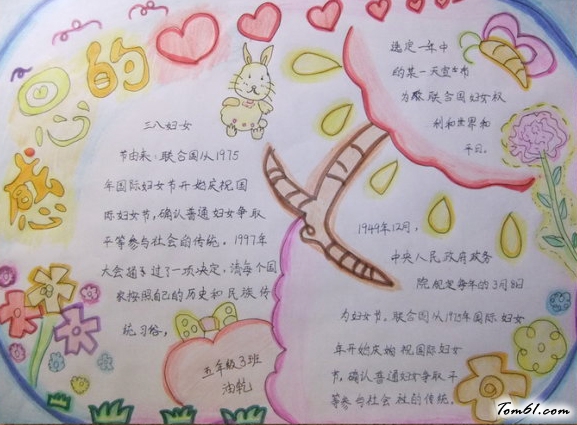 感恩的心
三八妇女
节由来:联合国从1975
年国际妇女节开始庆祝国
际妇女节,确认普通妇女争取
平等参与社会的传统。1997年
大会通过了一项决定,请每个国
家按照自己的历史和民族传
统习俗,
选定一年中
的某一天宣布
为联合国妇女权
利和世界和
平日。
1949年12月,
中央人民政府政务
院规定每年的3月8日
为妇女节。联合国从1975年国际妇女
年开始庆祝国际妇女
节,确认普通妇女争取平
等参与社会社的传统。
五年级3班
Tom61.com